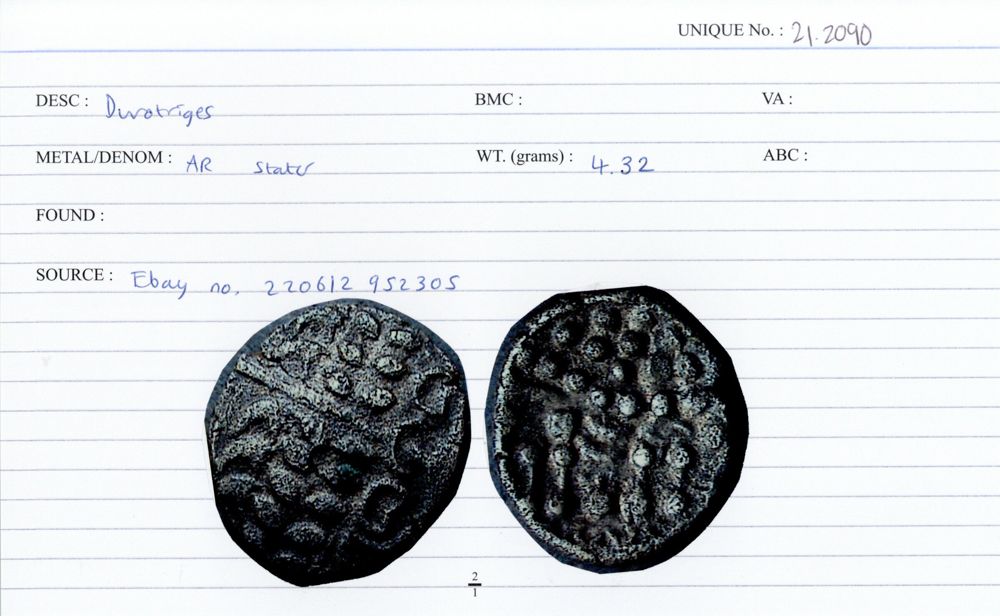 UNIQUE No. : 21.2090
DESC : Durotriges BMC : VA :
METAL/DENOM : AR Stater WT. (grams) : 4.32 ABC :
FOUND :
SOURCE : Ebay no. 220612 952305
2
1